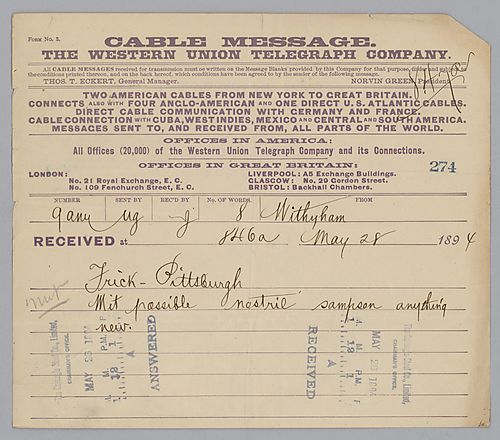 FORM No. 3.
CABLE MESSAGE.
THE WESTERN UNION TELEGRAPH COMPANY.
All CABLE MESSAGES received for transmission must be written on the Message Blanks provided by this Company for that purpose, under and subject to
the conditions printed thereon, and on the back hereof, which conditions have been agreed to by the sender of the following message.
THOS. T. ECKERT, General Manager. NORVIN GREEN, President.
TWO AMERICAN CABLES FROM NEW YORK TO GREAT BRITAIN.
CONNECTS ALSO WITH FOUR ANGLO-AMERICAN AND ONE DIRECT U.S. ATLANTIC CABLES.
DIRECT CABLE COMMUNICATION WITH GERMANY AND FRANCE.
CABLE CONNECTION WITH CUBA, WEST INDIES, MEXICO AND CENTRAL AND SOUTH AMERICA.
MESSAGES SENT TO, AND RECEIVED FROM, ALL PARTS OF THE WORLD.
OFFICES IN AMERICA:
All Offices (20,000) of the Western Union Telegraph Company and its Connections.
OFFICES IN GREAT BRITAIN:
274
LONDON: LIVERPOOL: A5 Exchange Buildings.
No. 21 Royal Exchange, E. C. GLASCOW: No. 29 Gordon Street.
No. 109 Fenchurch Street, E. C. BRISTOL: Backhall Chambers.
NUMBER SENT BY REC'D BY No. OF WORDS. FROM
8 Withyham
RECEIVED at 846a May 28 1894
Frick - Pittsburgh
possible sampson anything
new.
MAY 28 1894
ANSWERED
RECEIVED
MAY 28 1894